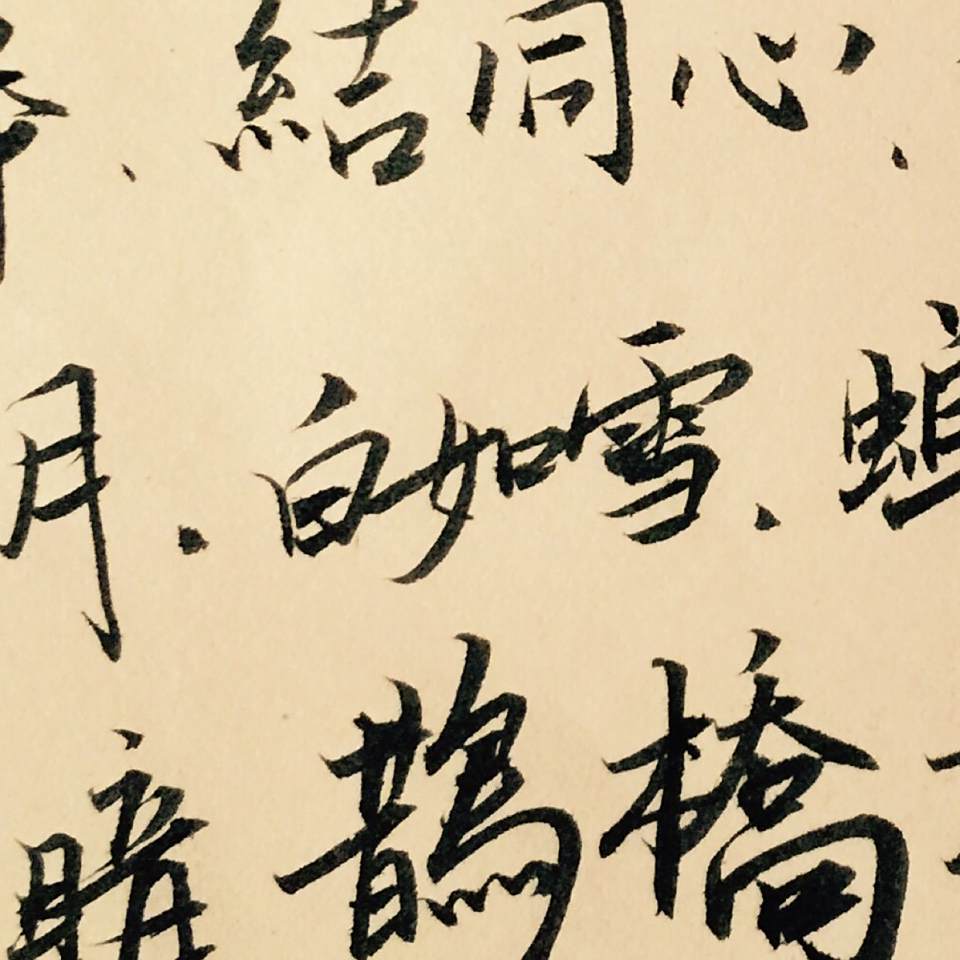 、結同心、
月、白如雪、
鵲橋